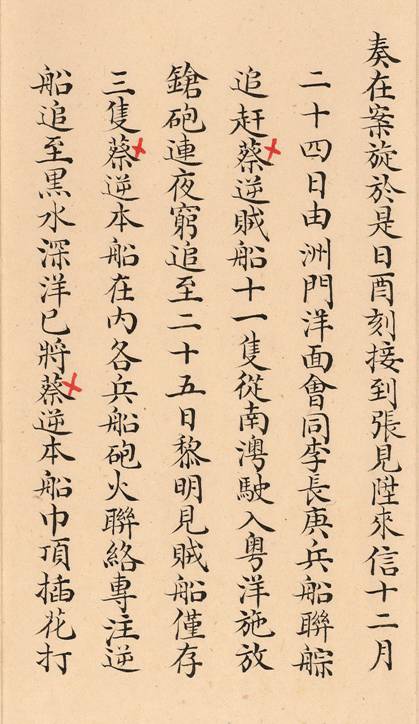 奏在案旋於是日酉刻接到張見陞來信十二月
二十四日由洲門洋面會同李長庚兵船聯䑸
追赶蔡逆賊船十一隻從南澚駛入粵洋施放
鎗砲連夜窮追至二十五日黎明見賊船僅存
三隻蔡逆本船在內各兵船砲火聯絡專注逆
船追至黒水深洋已將蔡逆本船巾頂插花打